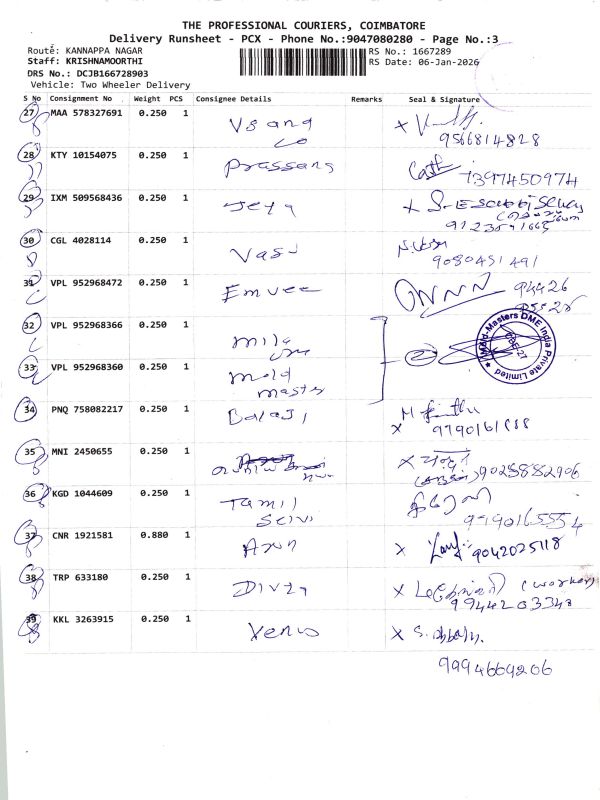 THE PROFESSIONAL COURIERS, COIMBATORE
Delivery Runsheet - PCX - Phone No.:9047080280 - Page No.:3
Route: KANNAPPA NAGAR
RS No.: 1667289
Staff: KRISHNAMOORTHI
RS Date: 06-Jan-2026
DRS No.: DCJB166728903
Vehicle: Two Wheeler Delivery
S No Consignment No Weight PCS Consignee Details Remarks Seal & Signature
27 MAA 578327691 0.250 1 Vsang co x
9566814828
28 KTY 10154075 0.250 1 Pressana
7397450974
29 IXM 509568436 0.250 1 Jeya x
30 CGL 4028114 0.250 1 Vasi
9080451491
31 VPL 952968472 0.250 1 Emvee 94426
32 VPL 952968366 0.250 1
33 VPL 952968360 0.250 1 mold
master
Mold-Masters DME India Private Limited
CBE-27
34 PNQ 758082217 0.250 1 Balaji
x
35 MNI 2450655 0.250 1 x
9025882906
36 KGD 1044609 0.250 1 Tamil
Selvi
37 CNR 1921581 0.880 1 Arun x 9042025118
38 TRP 633180 0.250 1 Divya x (worker)
9944203340
39 KKL 3263915 0.250 1 Venus x
9994669206